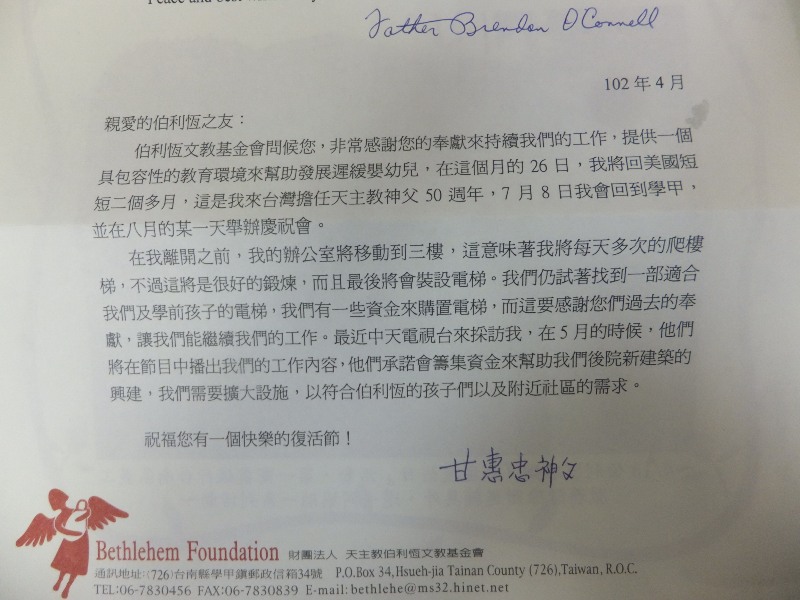 Father Brendon O'Connell
102 年 4 月
親愛的伯利恆之友：
伯利恆文教基金會問候您，非常感謝您的奉獻來持續我們的工作，提供一個
具包容性的教育環境來幫助發展遲緩嬰幼兒，在這個月的 26 日，我將回美國短
短二個多月，這是我來台灣擔任天主教神父 50 週年，7 月 8 日我會回到學甲，
並在八月的某一天舉辦慶祝會。
在我離開之前，我的辦公室將移動到三樓，這意味著我將每天多次的爬樓
梯，不過這將是很好的鍛煉，而且最後將會裝設電梯。我們仍試著找到一部適合
我們及學前孩子的電梯，我們有一些資金來購置電梯，而這要感謝您們過去的奉
獻，讓我們能繼續我們的工作。最近中天電視台來採訪我，在 5 月的時候，他們
將在節目中播出我們的工作內容，他們承諾會籌集資金來幫助我們後院新建築的
興建，我們需要擴大設施，以符合伯利恆的孩子們以及附近社區的需求。
祝福您有一個快樂的復活節！
甘惠忠神父
Bethlehem Foundation 財團法人 天主教伯利恆文教基金會
通訊地址:(726)台南縣學甲鎮郵政信箱34號 P.O.Box 34,Hsueh-jia Tainan County (726),Taiwan, R.O.C.
TEL:06-7830456 FAX:06-7830839 E-mail:bethlehe@ms32.hinet.net